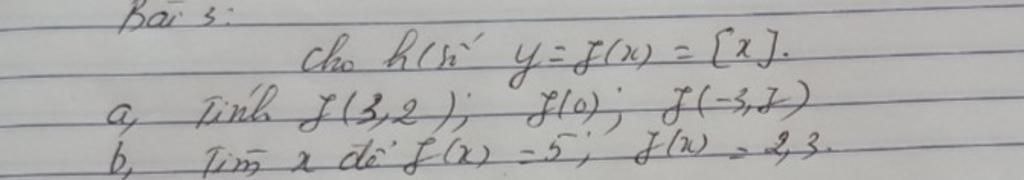 Bài 3:
Cho h/số y = f(x) = [x].
a, Tính f(3,2); f(0); f(-3,7)
b, Tìm x để f(x) = 5; f(x) = 2,3.